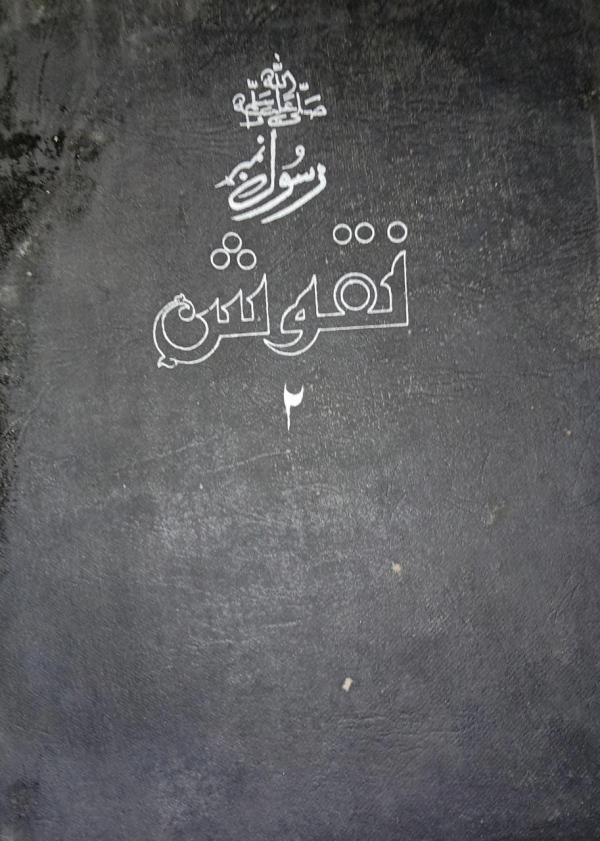 صلى الله عليه وسلم
رسول نمبر
نقوش
۲